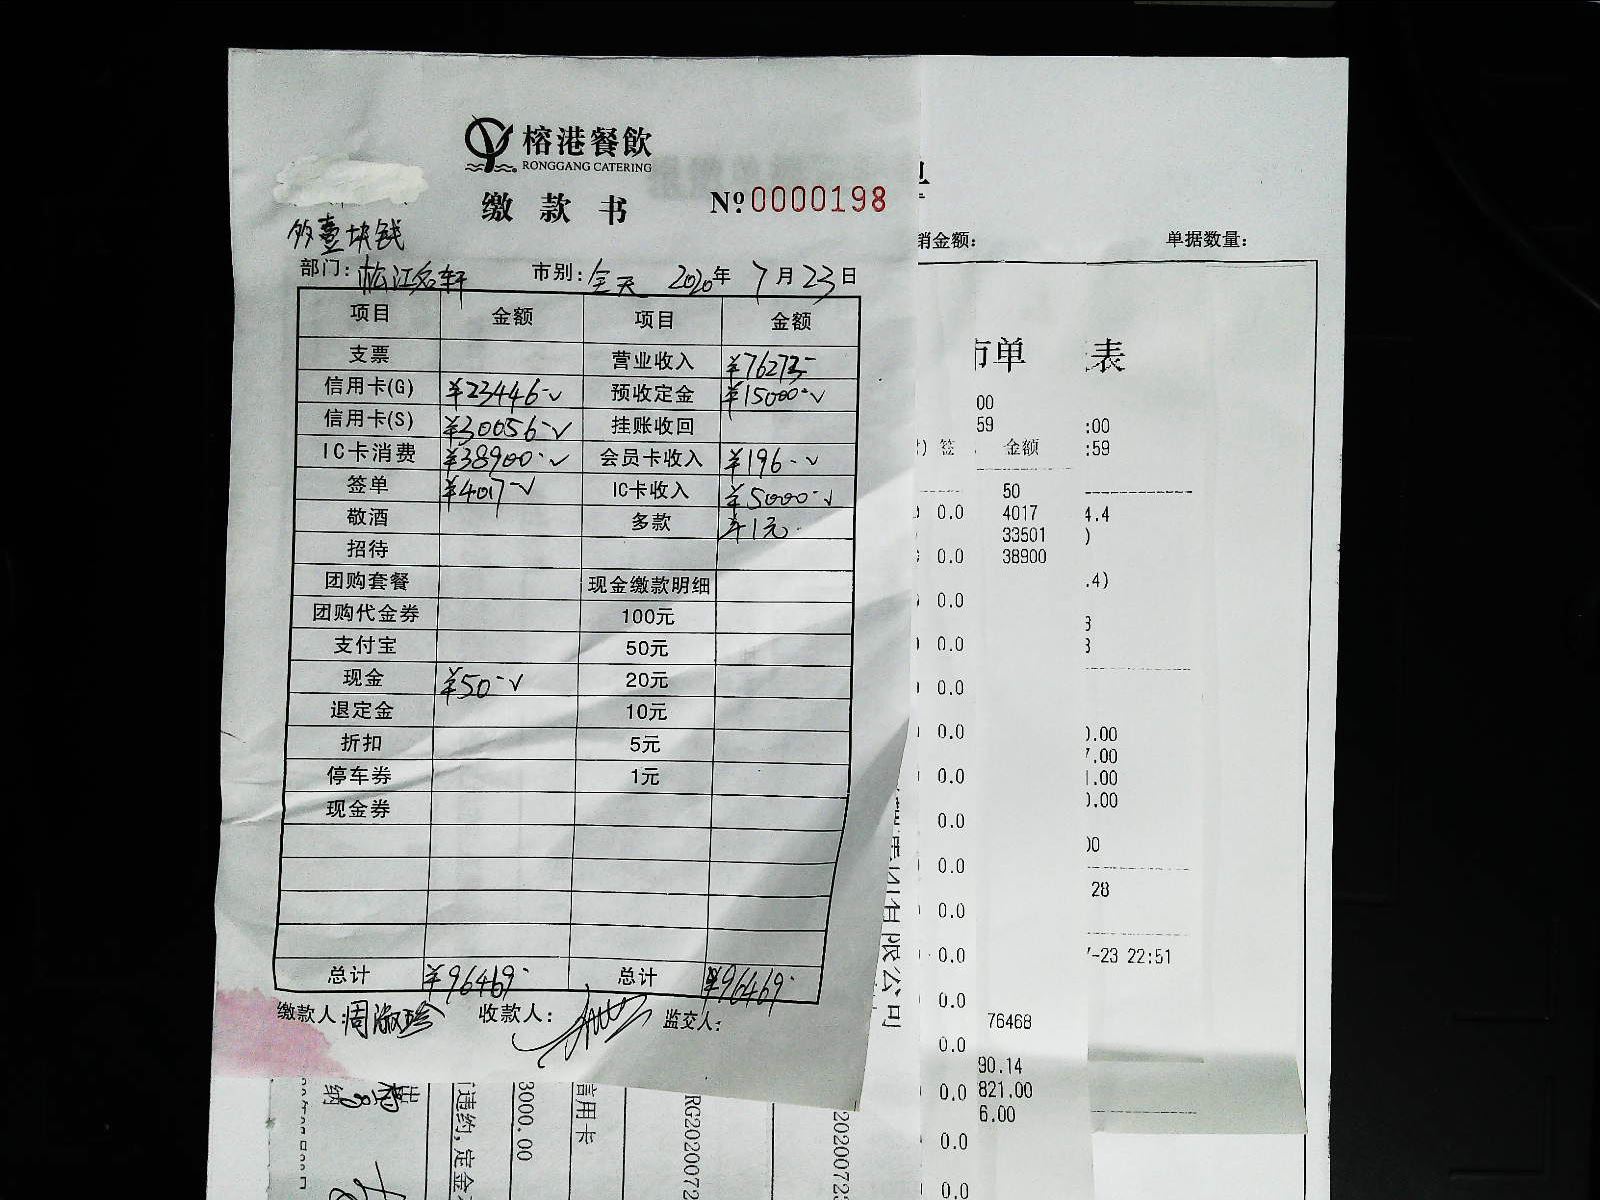 榕港餐飲
RONGGANG CATERING
缴款书 №0000198
多壹块钱
部门: 松江名轩 市别: 全天 2020年 7月23日
项目 金额 项目 金额
支票 营业收入 ¥76273-
信用卡(G) ¥23446-√ 预收定金 ¥15000-√
信用卡(S) ¥30056-√ 挂账收回
IC卡消费 ¥38900-√ 会员卡收入 ¥196-√
签单 ¥4017-√ IC卡收入 ¥5000-√
敬酒 多款 ¥1元
招待
团购套餐 现金缴款明细
团购代金券 100元
支付宝 50元
现金 ¥50-√ 20元
退定金 10元
折扣 5元
停车券 1元
现金券
总计 ¥96469- 总计 ¥96469-
缴款人: 周淑珍 收款人: 监交人:
销金额: 单据数量:
市单 表
00
59 :00
签 金额 :59
50
0.0 4017 4.4
33501 )
0.0 38900
.4)
0.0
3
0.0 3
0.0
0.0 0.00
7.00
0.0 1.00
0.00
0.0
00
0.0
28
0.0
0.0 7-23 22:51
0.0
76468
0.0
90.14
0.0 821.00
6.00
0.0
0.0
限公司
纳
违约,定金
3000.00
信用卡
RG2020072
2020072